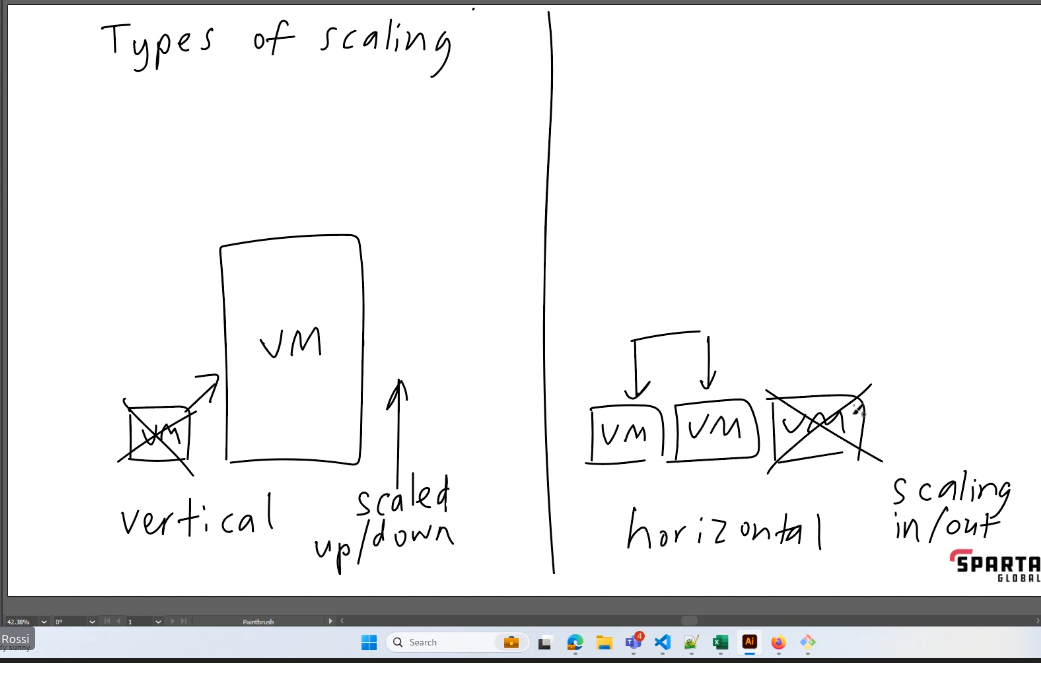 Types of scaling
VM
VM
vertical
scaled
up/down
VM
VM
VM
horizontal
scaling
in/out
SPARTA
GLOBAL
42.38%
0°
1
Paintbrush
Rossi
Search
4
Ai